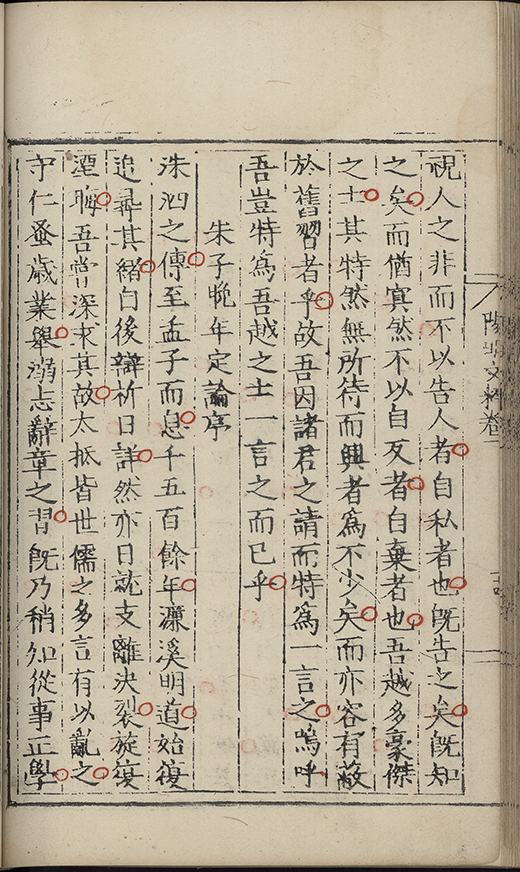 視人之非而不以告人者自私者也既告之矣既知
之矣而猶冥然不以自反者自棄者也吾越多豪傑
之士其特然無所待而興者為不少矣而亦容有蔽
於舊習者乎故吾因諸君之請而特為一言之嗚呼
吾豈特為吾越之士一言之而已乎
朱子晚年定論序
洙泗之傳至孟子而息千五百餘年濂溪明道始復
追尋其緒自後辯析日詳然亦日就支離決裂旋復
湮晦吾嘗深求其故大抵皆世儒之多言有以亂之
守仁蚤歲業舉溺志辭章之習既乃稍知從事正學
陽明文粹卷